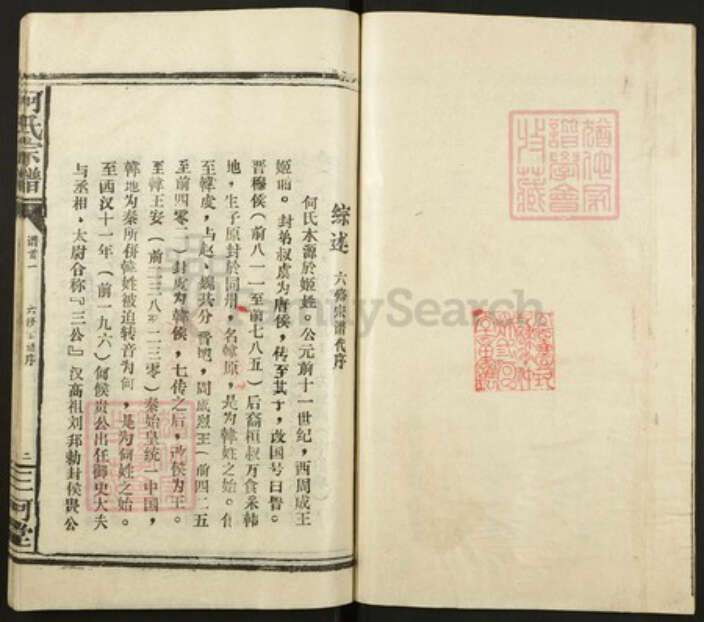 综述 六修宗谱代序
何氏本源於姬姓，公元前十一世纪，西周成王
姬诵。封弟叔虞为唐侯，传至其子，改国号曰晋。
晋穆侯（前八一一至前七八五）后裔桓叔万食采韩
地，生子原封於同州，名韩原，是为韩姓之始。传
至韩虔，与赵、魏共分晋地，周威烈王（前四二五
至前四零二）封虔为韩侯，七传之后，改侯为王。
至韩王安（前二三八至二三零）秦始皇统一中国，
韩地为秦所併韩姓被迫转音为何，是为何姓之始。
至西汉十一年（前一九六）何候贵公出任御史大夫
与丞相、太尉合称『三公』汉高祖刘邦勅封侯贵公
何氏宗谱
谱首一
六修宗谱序
二
三何堂
FamilySearch